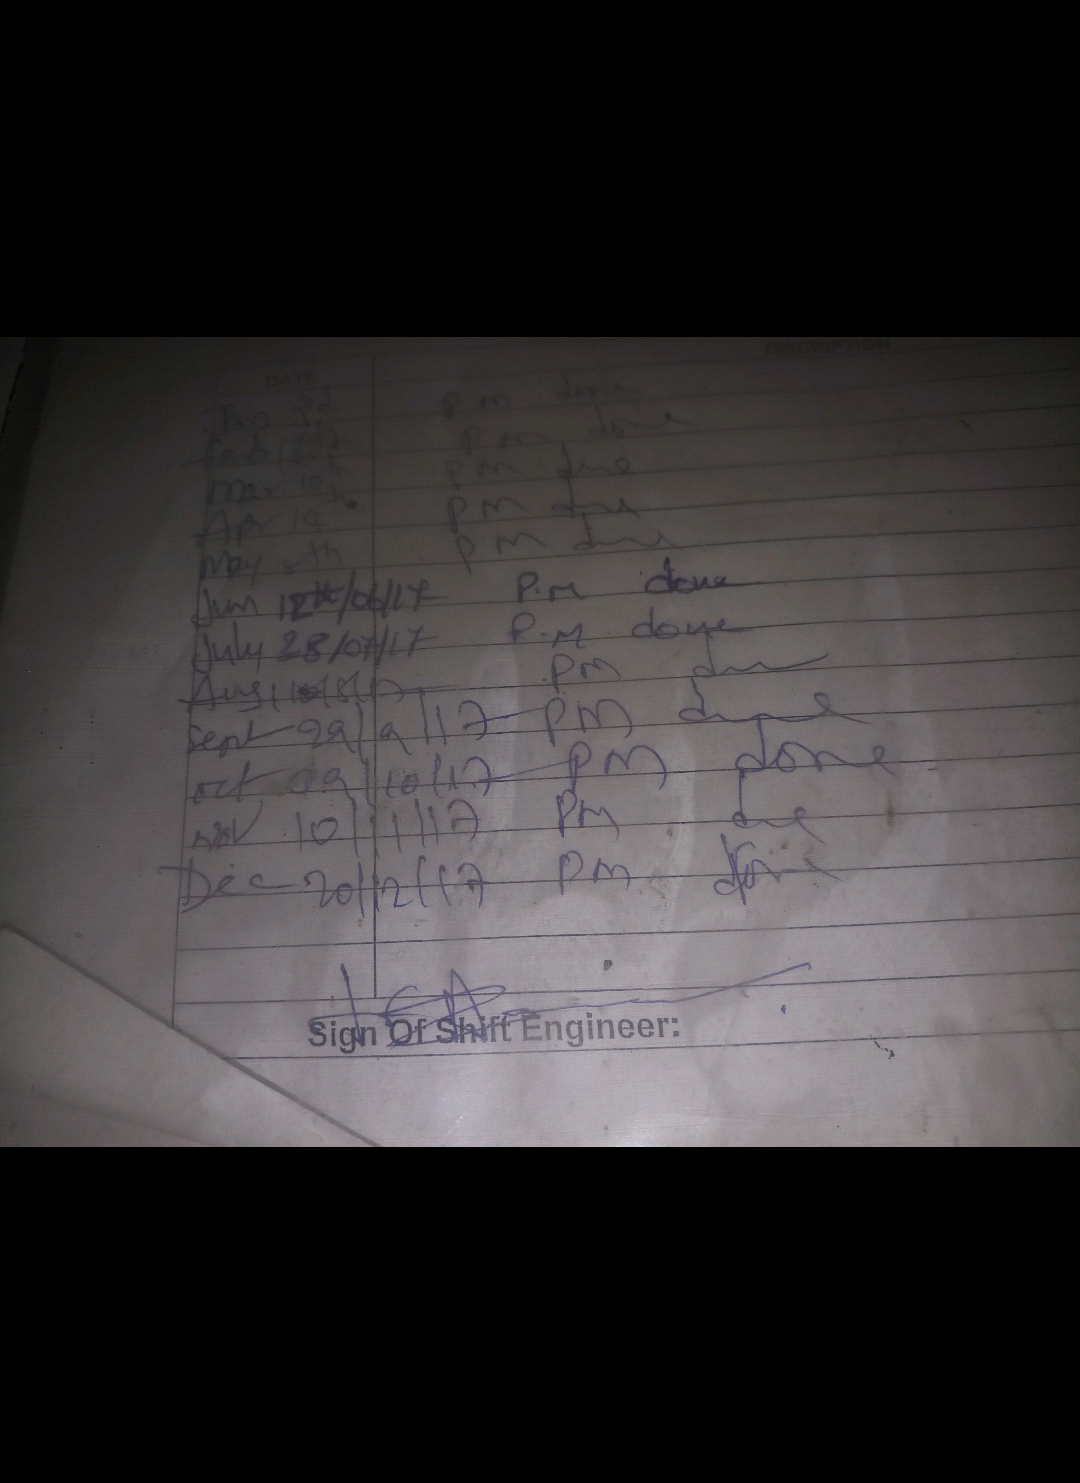 DATE DISCRIPTION
Jan PM done
Feb PM done
Mar 10th PM done
Apr 19th PM done
May 8th PM done
Jun 12th/06/17 P.M done
July 28/07/17 P.M done
Aug PM done
Sept 29/9/17 PM done
oct 09/10/17 PM done
nov 10/11/17 PM done
Dec 20/12/17 PM done
Sign Of Shift Engineer: